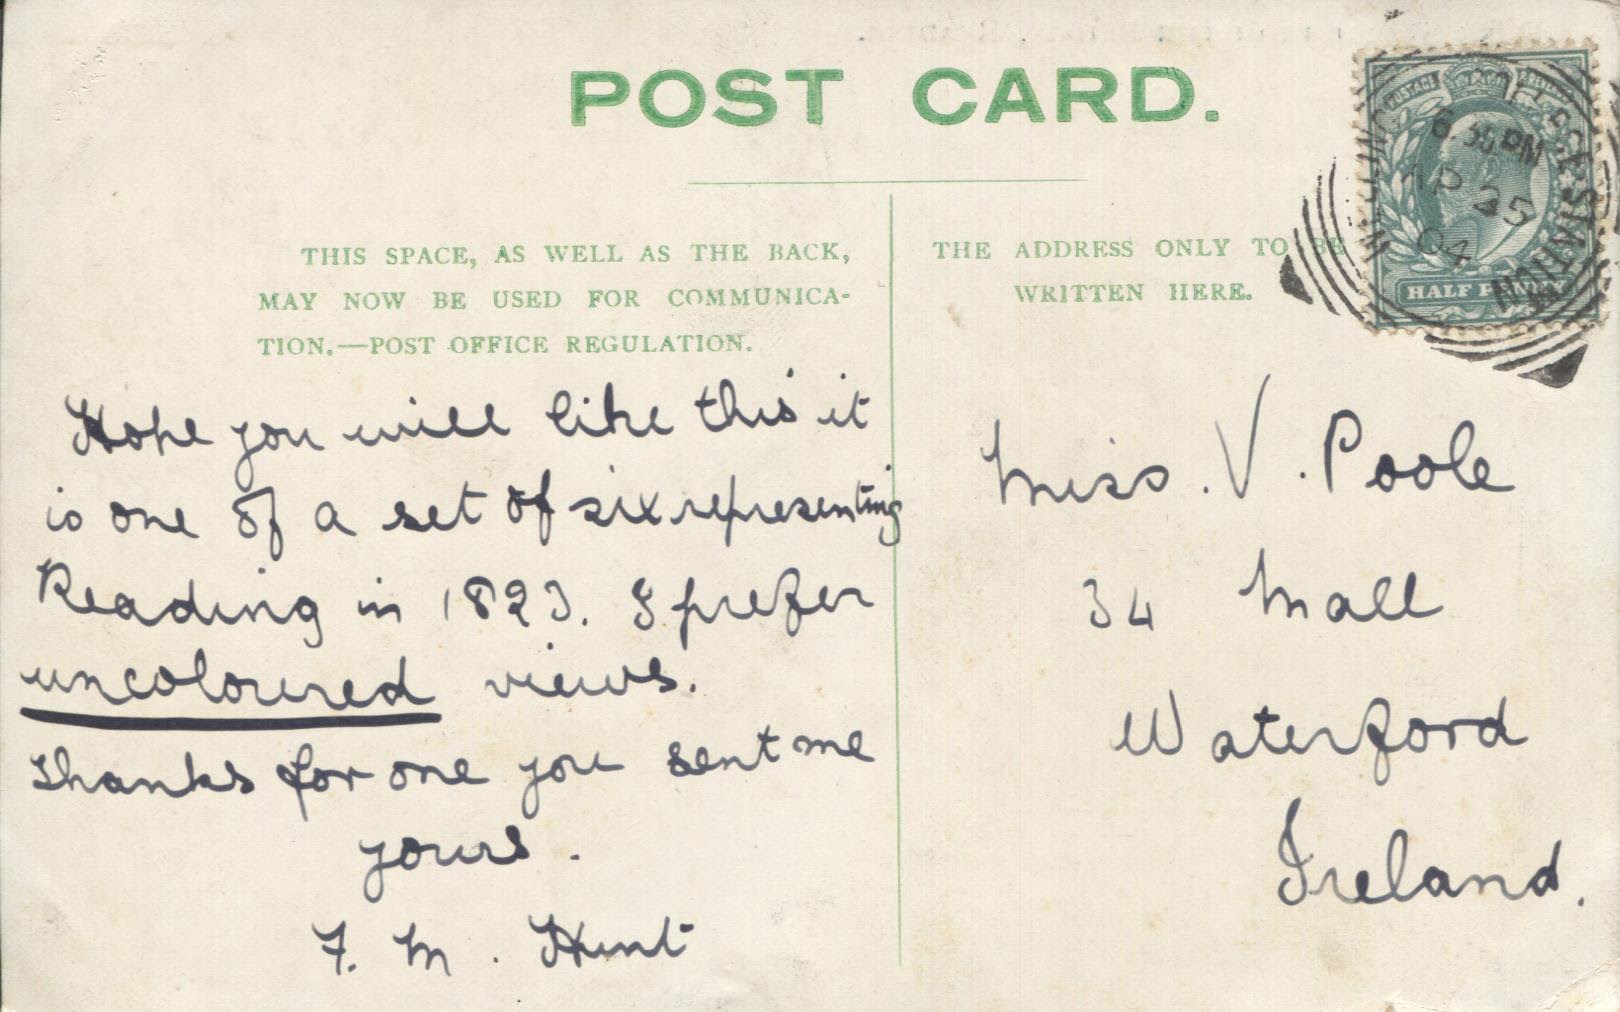 POST CARD.
THIS SPACE, AS WELL AS THE BACK,
MAY NOW BE USED FOR COMMUNICA-
TION.—POST OFFICE REGULATION.
THE ADDRESS ONLY TO BE
WRITTEN HERE.
POSTAGE
6.30 PM
AP 25
04
HALF PENNY
Hope you will like this it
is one of a set of six representing
Reading in 1823. I prefer
uncoloured views.
Thanks for one you sent me
yours.
F. M. Hunt
Miss. V. Poole
34 Mall
Waterford
Ireland.